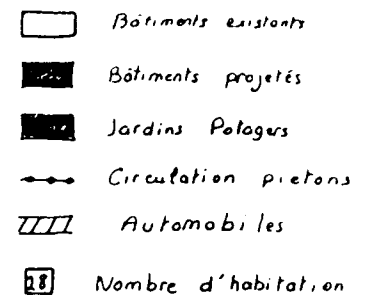 Bâtiments existants
Bâtiments projetés
Jardins Potagers
Circulation pietons
Automobiles
28 Nombre d'habitation